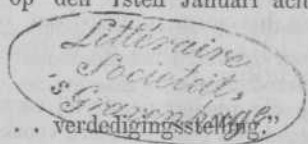 op den 1sten Januari ach
Littéraire
Societeit,
's Gravenhage
. . verdedigingsstelling."